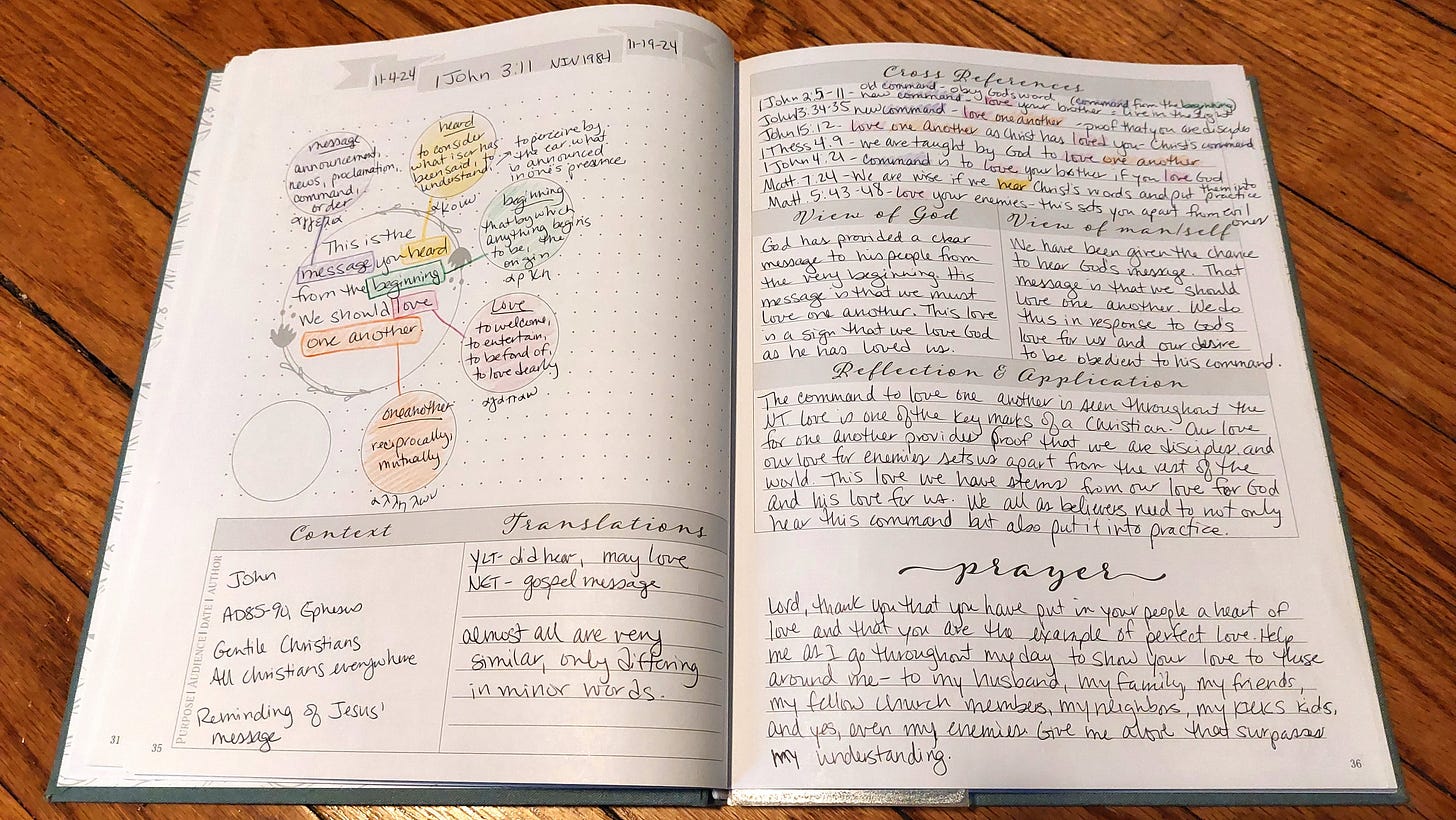 11-4-24
1 John 3:11 NIV 1984
11-19-24
message
announcement,
news, proclamation,
command,
order
heard
to consider
what is or has
been said, to
understand,
to perceive by
the ear what
is announced
in one's presence
beginning
that by which
anything begins
to be, the
origin
This is the
message you heard
from the beginning
We should love
one another
Love
to welcome,
to entertain,
to be fond of,
to love dearly
one another
reciprocally,
mutually
Context
PURPOSE | AUDIENCE | DATE | AUTHOR
John
AD85-90, Ephesus
Gentile Christians
All christians everywhere
Reminding of Jesus'
message
Translations
YLT- did hear, may love
NET- gospel message
almost all are very
similar, only differing
in minor words.
31
35
Cross References
old command - obey God's word (command from the beginning)
1 John 2:5-11 - new command - love your brother = live in the light
John 13.34-35 new command - love one another - proof that you are disciples
John 15:12 - love one another as Christ has loved you - Christ's command
1 Thess 4.9 - we are taught by God to love one another
1 John 4.21 - command is to love your brother if you love God
Matt. 7.24 - We are wise if we hear Christ's words and put them into practice
Matt. 5:43-48 - love your enemies - this sets you apart from evil ones
View of God
God has provided a clear
message to his people from
the very beginning. His
message is that we must
love one another. This love
is a sign that we love God
as he has loved us.
View of man/self
We have been given the chance
to hear God's message. That
message is that we should
love one another. We do
this in response to God's
love for us and our desire
to be obedient to his command.
Reflection & Application
The command to love one another is seen throughout the
NT. Love is one of the key marks of a Christian. Our love
for one another provides proof that we are disciples and
our love for enemies sets us apart from the rest of the
world. This love we have stems from our love for God
and his love for us. We all as believers need to not only
hear this command but also put it into practice.
prayer
Lord, thank you that you have put in your people a heart of
love and that you are the example of perfect love. Help
me as I go throughout my day to show your love to those
around me - to my husband, my family, my friends,
my fellow church members, my neighbors, my kids,
and yes, even my enemies. Give me a love that surpasses
my understanding.
36